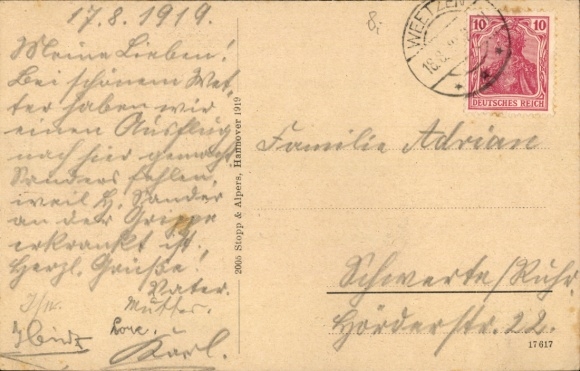 17.8.1919.
Meine Lieben!
Bei schönem Wet-
ter haben wir
einen Ausflug
nach hier gemacht.
Sanders fehlen,
weil H. Sander
an der Grippe
erkrankt ist.
Herzl. Grüße!
Vater.
Mutter.
Lore.
Karl.
2005 Stopp & Alpers, Hannover 1919
8,
WEETZEN
18.8.
10 10
DEUTSCHES REICH
Familie Adrian
Schwerte/Ruhr.
Hörderstr. 22.
17617